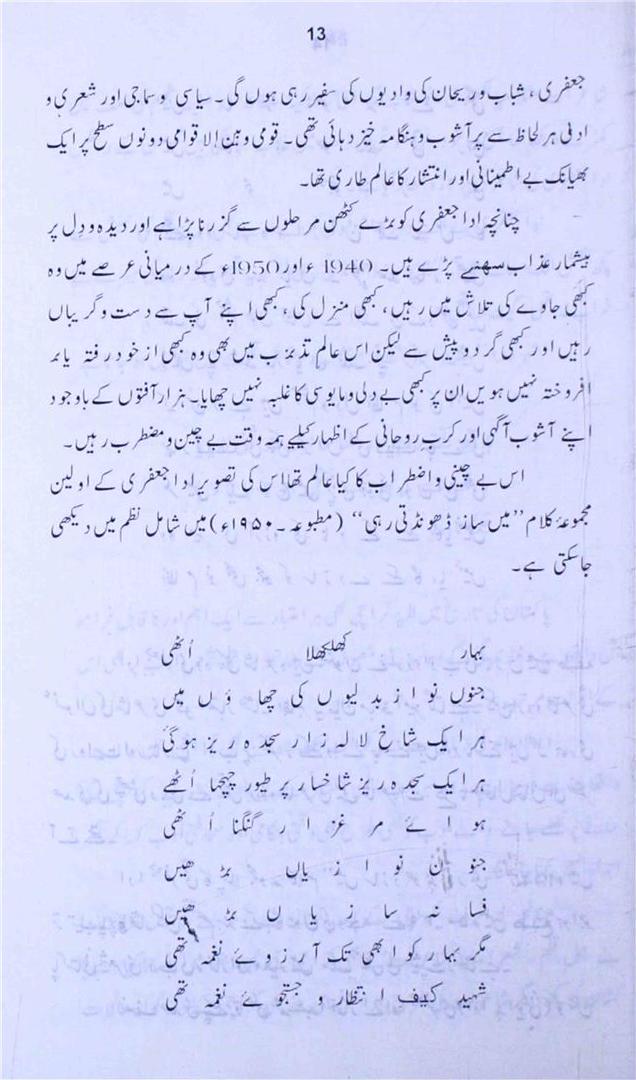 13
جعفری، شباب و ریحان کی وادیوں کی سفیر رہی ہوں گی۔ سیاسی و سماجی اور شعری و
ادبی ہر لحاظ سے پر آشوب و ہنگامہ خیز دہائی تھی۔ قومی و بین الاقوامی دونوں سطح پر ایک
بھیانک بے اطمینانی اور انتشار کا عالم طاری تھا۔
چنانچہ ادا جعفری کو بڑے کٹھن مرحلوں سے گزرنا پڑا ہے اور دیدہ و دل پر
بیشمار عذاب سہنے پڑے ہیں۔ 1940 ء اور 1950ء کے درمیانی عرصے میں وہ
کبھی جادے کی تلاش میں رہیں، کبھی منزل کی، کبھی اپنے آپ سے دست و گریباں
رہیں اور کبھی گرد و پیش سے لیکن اس عالم تذبذب میں بھی وہ کبھی از خود رفتہ یا بر
افروختہ نہیں ہویں ان پر کبھی بے دلی و مایوسی کا غلبہ نہیں چھایا۔ ہزار آفتوں کے باوجود
اپنے آشوب آگہی اور کرب روحانی کے اظہار کیلیے ہمہ وقت بے چین و مضطرب رہیں۔
اس بے چینی و اضطراب کا کیا عالم تھا اس کی تصویر ادا جعفری کے اولین
مجموعۂ کلام ’’میں ساز ڈھونڈتی رہی‘‘ (مطبوعہ۔ ۱۹۵۰ء) میں شامل نظم میں دیکھی
جاسکتی ہے۔
بہار کھلکھلا اُٹھی
جنوں نواز بدلیوں کی چھاؤں میں
ہر ایک شاخ لالہ زار سجدہ ریز ہوگئ
ہر ایک سجدہ ریز شاخسار پر طیور چہچہا اُٹھے
ہوائے مرغزار گنگنا اُٹھی
جنون نوازیاں بڑھیں
فسانہ سازیاں بڑھیں
مگر بہار کو ابھی تک آرزوئے نغمہ تھی
شہید کیف انتظار و جستجوئے نغمہ تھی